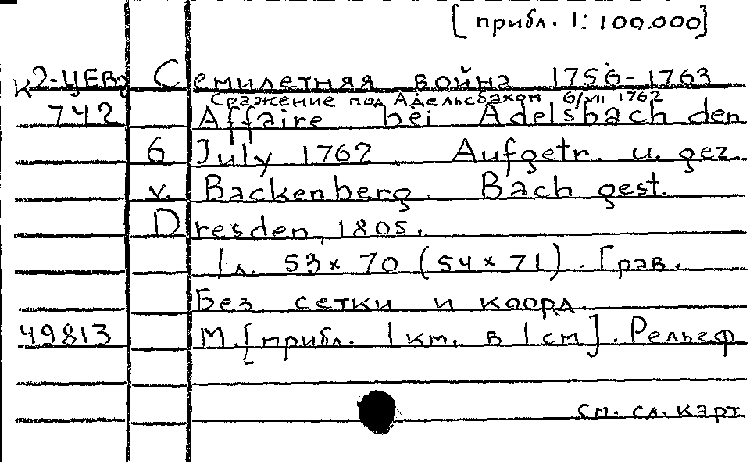 [прибл. 1:100.000]
К2-ЦЕВр Семилетняя война 1756-1763
Сражение под Адельсбахом 6/VII 1762
742 Affaire bei Adelsbach den
6 July 1762 Aufgetr. u. gez.
v. Backenberg. Bach gest.
Dresden, 1805.
1 л. 53 x 70 (54 x 71). Грав.
Без сетки и коорд.
49813 М. [прибл. 1 км. в 1 см]. Рельеф
см. сл. карт